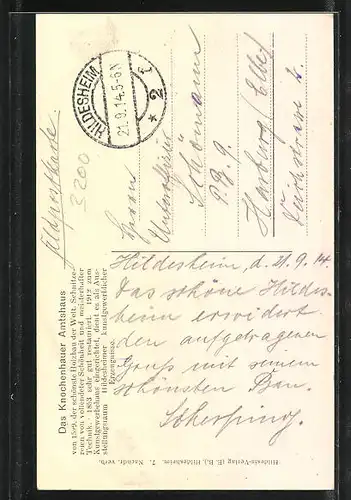 Feldpostkarte
3200
HILDESHEIM
21.9.14.5-6N
* 2 f
Herrn
Unteroffizier
Schömann
Harburg (Elbe)
Hildesheim, d. 21.9.14.
Das schöne Hildes-
heim erwidert
den aufgetragenen
Gruß mit seinem
schönsten Bau.
Das Knochenhauer Amtshaus
von 1529, der schönste Holzbau der Welt. Schnitze-
reien von vollendeter Schönheit und meisterhafter
Technik. 1853 sehr gut restauriert. 1912 zum
Kunstgewerbehaus eingerichtet, dient es als Aus-
stellungsraum Hildesheimer kunstgewerblicher
Erzeugnisse.
Hildesia-Verlag (E. B.), Hildesheim. 7. Nachdr. verb.